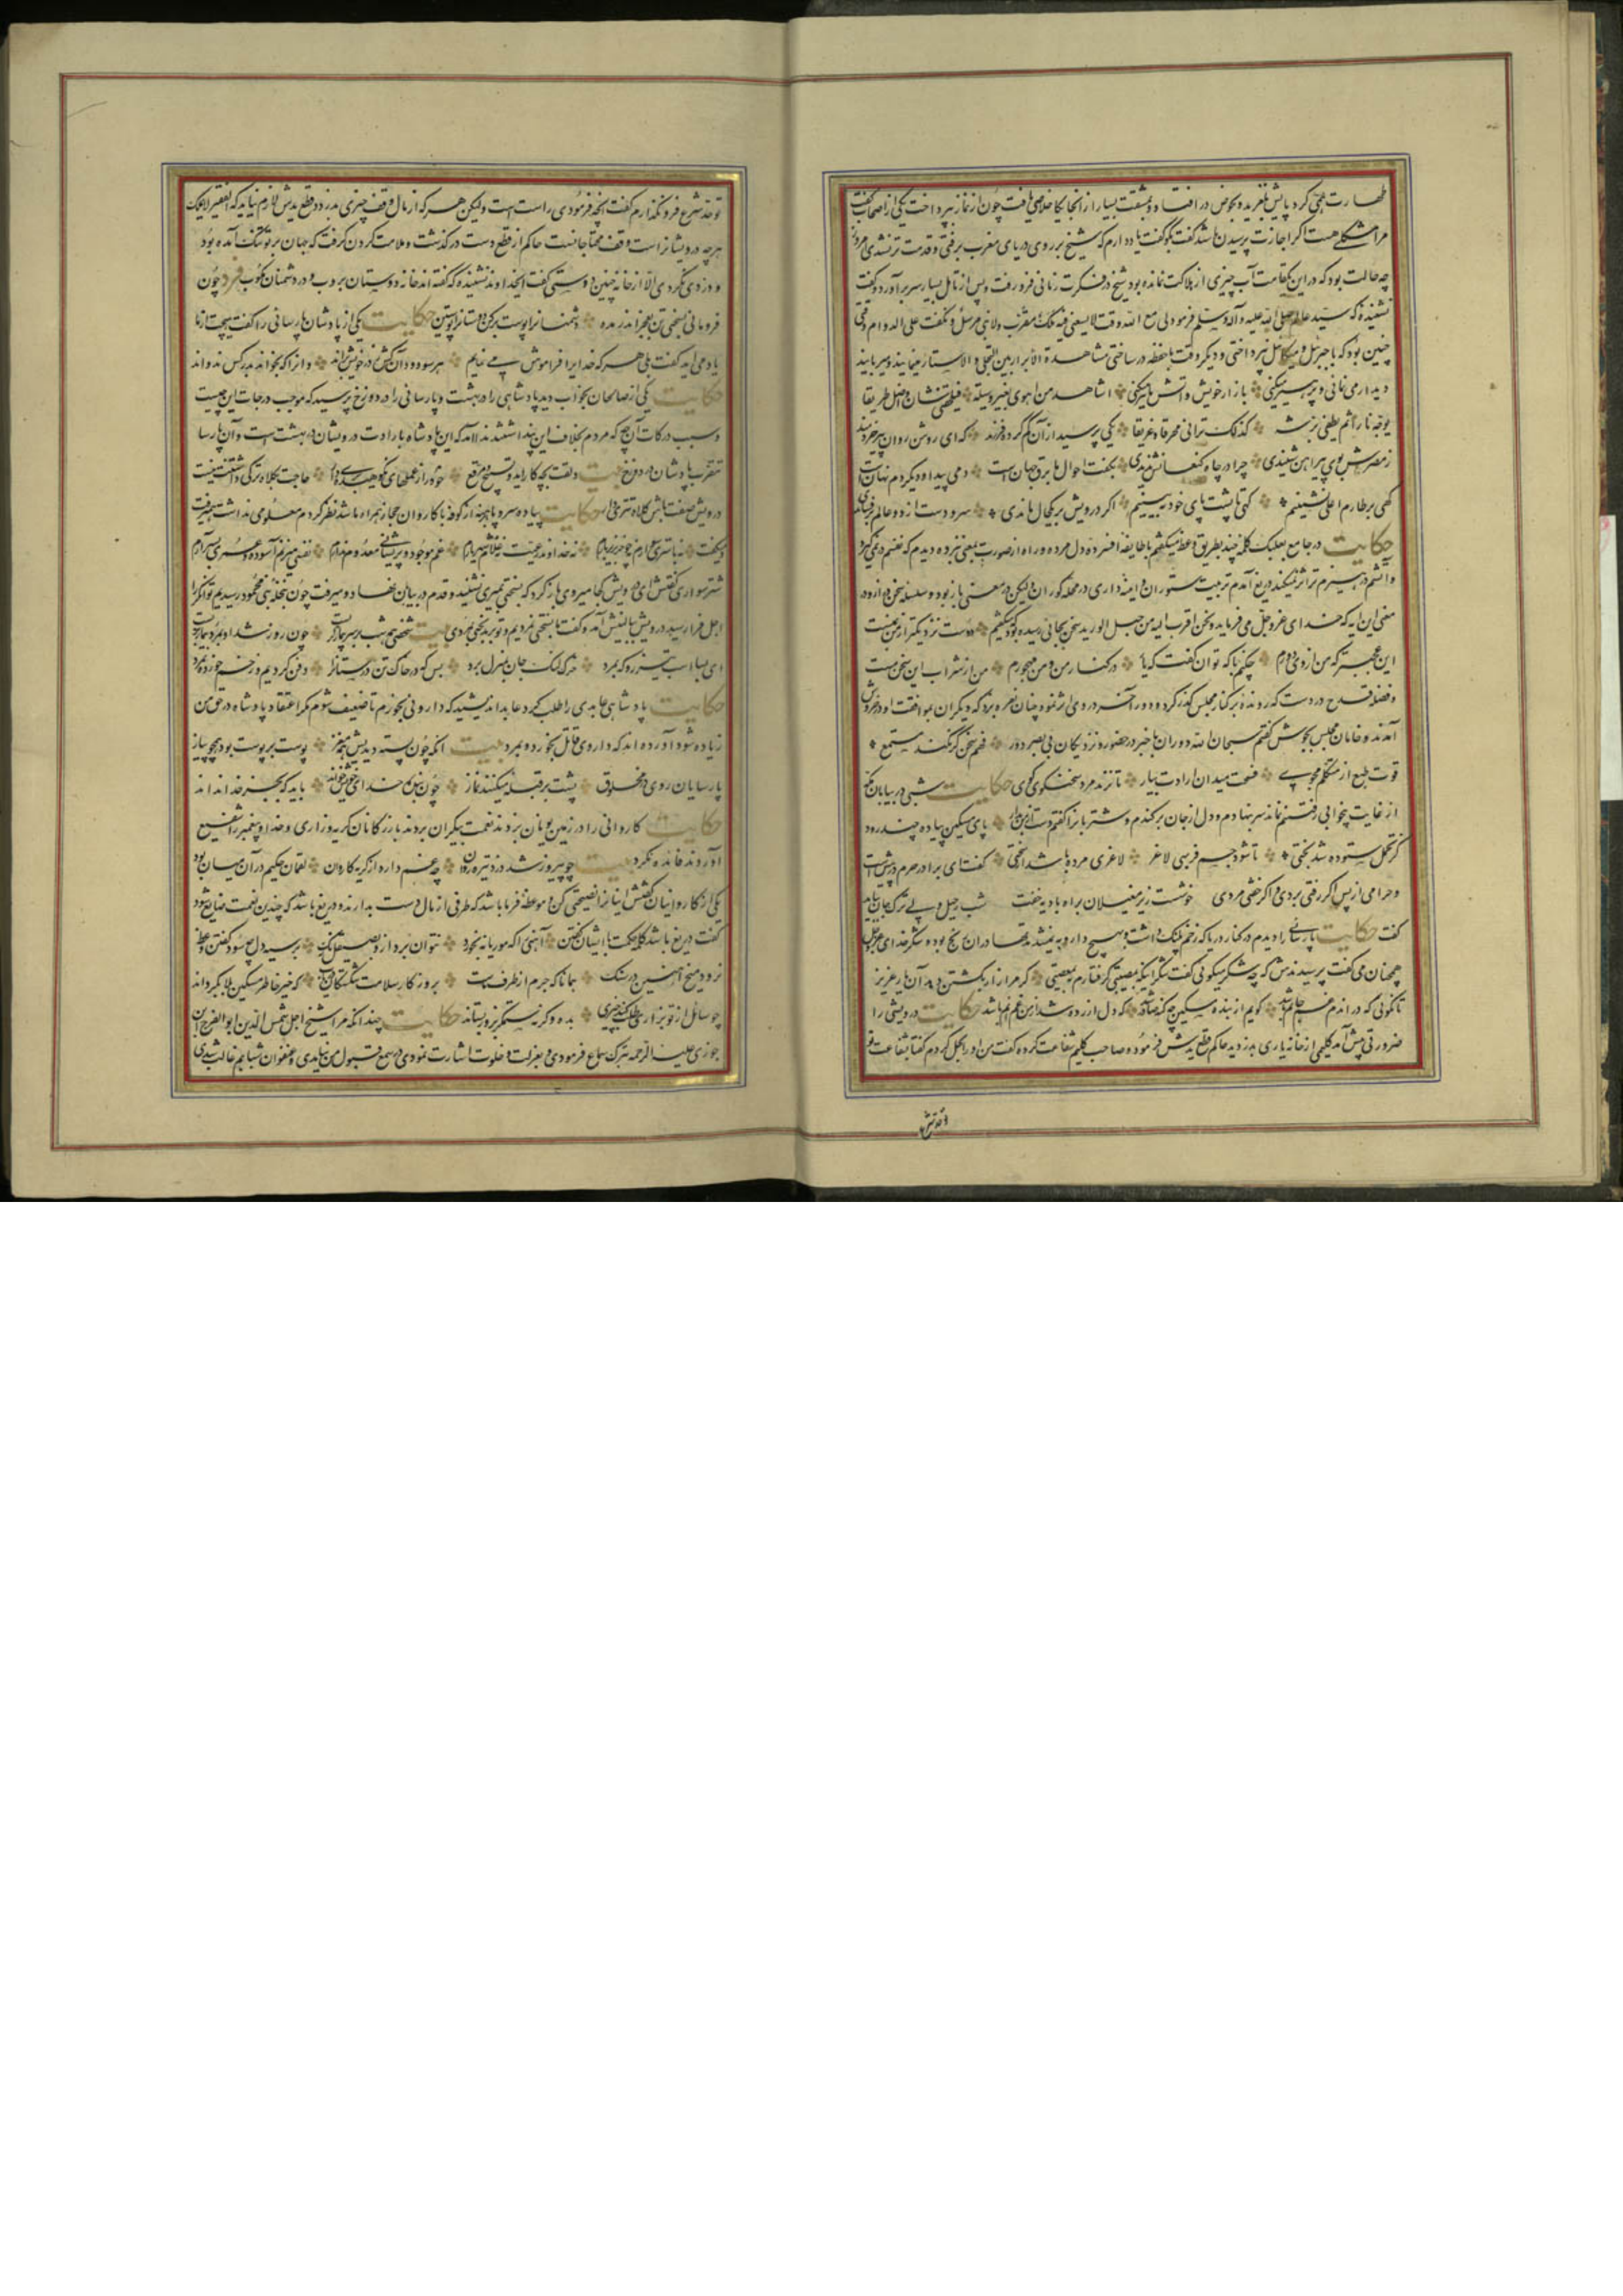 طهارت همی کرد پایش بلغزید و بحوض در افتاد و بمشقت بسیار از آنجایگاه خلاصی یافت چون از نماز بپرداخت یکی از اصحاب گفت
مرا مشکلی هست اگر اجازت پرسیدن باشد گفت بگو گفت یاد دارم که شیخ بر روی دریای مغرب برفتی و قدمت تر نشدی امروز
چه حالت بود که در این یکقامت آب چیزی از هلاکت نمانده بود شیخ در فکرت زمانی فرو رفت و پس از تامل بسیار سر برآورد و گفت
نشنیده که سید عالم صلی الله علیه و آله وسلم فرمود لی مع الله وقت لا یسعنی فیه ملک مقرب ولا نبی مرسل و نگفت علی الدوام وقتی
چنین بود که با جبرئیل و میکائیل نپرداختی و دیگر وقت با حفظه در ساختی مشاهدة الابرار بین التجلی و الاستتار مینمایند و میربایند
دیدار می نمائی و پرهیز میکنی بازار خویش و آتش ما تیز میکنی اشاهد من اهوی بغیر وسیلة فیلحقنی شان اضل طریقا
یؤجج نارا ثم یطفی برشة کذلک ترانی محرقا و غریقا یکی پرسید از آن گم کرده فرزند که ای روشن روان پیر خردمند
ز مصرش بوی پیراهن شنیدی چرا در چاه کنعانش ندیدی بگفت احوال ما برق جهان است دمی پیدا و دیگر دم نهان است
گهی بر طارم اعلی نشینم گهی تا پشت پای خود نبینم اگر درویش بر یکحال ماندی سر و دست از دو عالم برفشاندی
حکایت در جامع بعلبک کلمه چند بطریق وعظ میگفتم با طایفه افسرده دل مرده و راه از صورت بمعنی نبرده دیدم که نفسم در نمیگیرد
و آتشم در هیزم تر اثر نمیکند دریغ آمدم تربیت ستوران و آینه داری در محله کوران ولیکن در معنی باز بود و سلسله سخن دراز در
معنی این آیه که خدای عز و جل می فرماید و نحن اقرب الیه من حبل الورید سخن بجائی رسیده بود که میگفتم دوست نزدیکتر از من بمنست
این عجبتر که من از وی دورم چکنم با که توان گفت که یار در کنار من و من مهجورم من از شراب این سخن مست
و فضله قدح در دست که رونده بر کنار مجلس گذر کرد و دور آخر در وی اثر نمود چنان نعره بزد که دیگران بموافقت او در خروش
آمدند و خامان مجلس بجوش گفتم سبحان الله دوران باخبر در حضور و نزدیکان بی بصر دور فهم سخن گر نکند مستمع
قوت طبع از متکلم مجوی فسحت میدان ارادت بیار تا بزند مرد سخنگوی گوی حکایت شبی در بیابان مکه
از غایت بیخوابی پای رفتنم نماند سر بنهادم و دل از جان برکندم و شتربانرا گفتم دست از من بدار پای مسکین پیاده چند رود
کز تحمل ستوده شد بختی تا شود جسم فربهی لاغر لاغری مرده باشد از سختی گفت ای برادر حرم در پیش است
و حرامی از پس اگر رفتی بردی و اگر خفتی مردی خوشست زیر مغیلان براه بادیه خفت شب رحیل ولی ترک جان بباید
گفت حکایت پارسائی را دیدم در کنار دریا که زخم پلنگ داشت و بهیچ دارو به نمیشد مدتها در آن رنج بود و شکر خدای عز و جل
همچنان می گفت پرسیدندش که چه شکر میگوئی گفت شکر آنکه بمصیبتی گرفتارم نه بمعصیتی گر مرا زار بکشتن دهد آن یار عزیز
تا نگوئی که در آندم غم جانم باشد گویم از بنده مسکین چه گنه صادر شد کو دل آزرده شد از من غم آنم باشد حکایت درویشی را
ضرورتی پیش آمد گلیمی از خانه یاری بدزدید حاکم قطع یدش فرمود و صاحب گلیم شفاعت کرد که گفت من او را بحل کردم گفتا بشفاعت تو
تو حد شرع فرو نگذارم گفت آنچه فرمودی راست است ولیکن هر که از مال وقف چیزی بدزدد قطع یدش لازم نیاید که الفقیر لا یملک
هر چه درویشانراست وقف محتاجانست حاکم از قطع دست درگذشت و ملامت کردن گرفت که جهان بر تو تنگ آمده بود
و دزدی نکردی الا از خانه چنین دوستی گفت ایخداوند نشنیده که گفته اند خانه دوستان بروب و در دشمنان مکوب فرد چون
فرومانی بسختی تن بعجز اندر مده دشمنانرا پوست برکن دوستانرا پوستین حکایت یکی از پادشاهان پارسائی را گفت هیچت از ما
یاد می آید گفت بلی هر که خدایرا فراموش می نمایم هر سو دود آنکش ز در خویش براند و آنرا که بخواند بدر کس ندواند
حکایت یکی از صالحان بخواب دید پادشاهی را در بهشت و پارسائی را در دوزخ پرسید که موجب درجات این چیست
و سبب درکات آن چه که مردم بخلاف این پنداشتند ندا آمد که این پادشاه بارادت درویشان در بهشت است و آن پارسا
بتقرب پادشاهان در دوزخ بیت دلقت بچه کار آید و تسبیح و مرقع خود را ز عملهای نکوهیده بری دار حاجت بکلاه ترکی داشتنت نیست
درویش صفت باش و کلاه تتری دار حکایت پیاده سر و پا برهنه از کوفه با کاروان حجاز همراه ما شد نظر کردم معلومی نداشت میرفت
و میگفت نه باشتری سوارم نه چو خر بزیر بارم نه خداوند رعیت نه غلام شهریارم غم موجود و پریشانی معدوم ندارم نفسی میزنم آسوده و عمری بسر آرم
شتر سواری گفتش ای درویش کجا میروی بازگرد که بسختی بمیری نشنید و قدم در بیابان نهاد و میرفت چون بنخله بنی محمود رسیدیم توانگر را
اجل فرا رسید درویش ببالینش آمد و گفت ما بسختی نمردیم و تو بر بختی بمردی بیت شخصی همه شب بر سر بیمار گریست چون روز شد او بمرد و بیمار بزیست
ای بسا اسب تیزرو که بمرد خرک لنگ جان بمنزل برد بس که در خاک تن درستانرا دفن کردیم و زخم خورده نمرد
حکایت پادشاهی عابدی را طلب کرد عابد اندیشید که داروئی بخورم تا ضعیف شوم مگر اعتقاد پادشاه در حق من
زیاده شود آورده اند که داروی قاتل بخورد و بمرد بیت آنکه چون پسته دیدمش همه مغز پوست بر پوست بود همچو پیاز
پارسایان روی در مخلوق پشت بر قبله میکنند نماز چون بنده خدای خویش خواند باید که بجز خدا نداند
حکایت کاروانی را در زمین یونان بزدند نعمت بیکران بردند بازرگانان گریه و زاری و خدا و پیغمبر را شفیع
آوردند فائده نکرد بیت چو پیروز شد دزد تیره روان چه غم دارد از گریه کاروان لقمان حکیم در آن میان بود
یکی از کاروانیان گفتش اینانرا نصیحتی کن و موعظه فرما باشد که طرفی از مال دست بدارند و دریغ باشد که چندین نعمت ضایع شود
گفت دریغ باشد کلمه حکمت با ایشان گفتن آهنی را که موریانه بخورد نتوان برد ازو بصیقل زنگ بر سیه دل چه سود گفتن وعظ
نرود میخ آهنین در سنگ همانا که جرم از طرف ماست بروزگار سلامت شکستگان دریاب که خیر خاطر مسکین بلا بگرداند
چو سائل از تو بزاری طلب کند چیزی بده وگرنه ستمگر بزور بستاند حکایت چندانکه مرا شیخ اجل شمس الدین ابوالفرج ابن
جوزی علیه الرحمه بترک سماع فرمودی و بعزلت و خلوت اشارت نمودی در سمع قبول من نیامدی و عنفوان شبابم غالب شدی